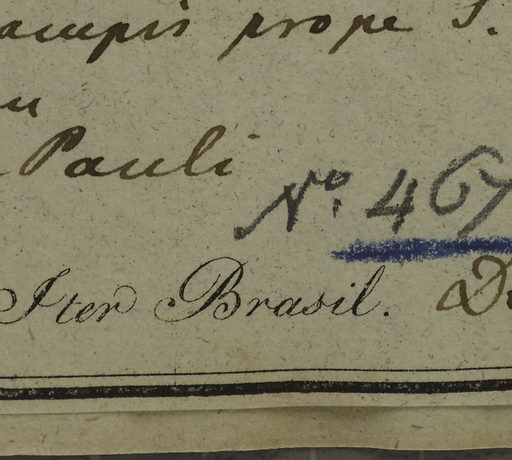 ampis prope S.
Pauli
No. 467
Iter Brasil. D